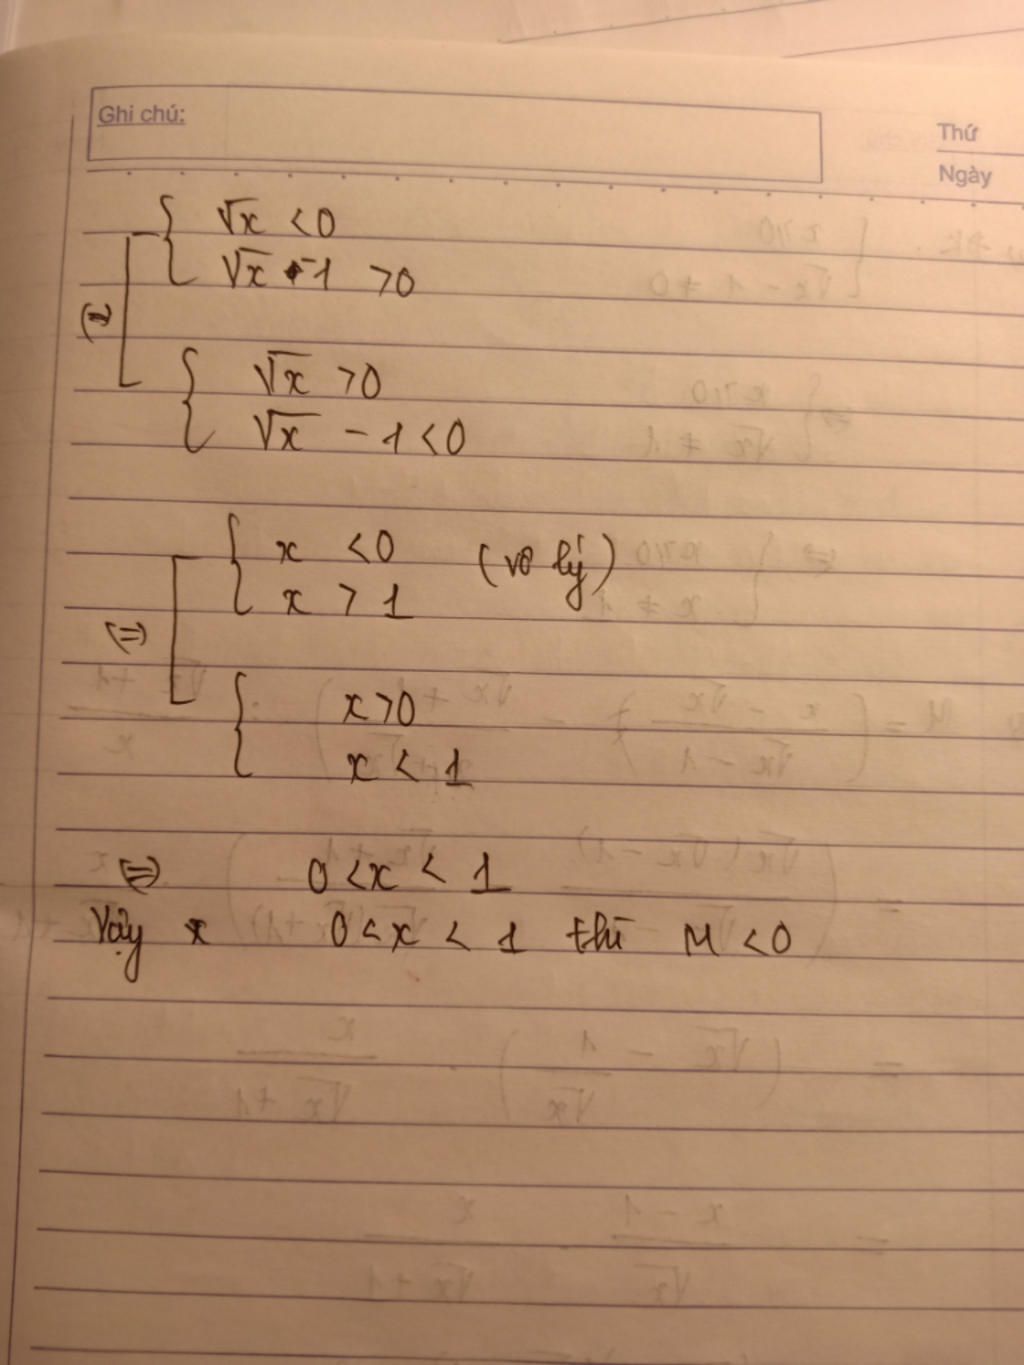 Ghi chú:
Thứ
Ngày
√x < 0
√x - 1 > 0
(=)
√x > 0
√x - 1 < 0
x < 0 (vô lý)
x > 1
(=)
x > 0
x < 1
(=) 0 < x < 1
Vậy x 0 < x < 1 thì M < 0